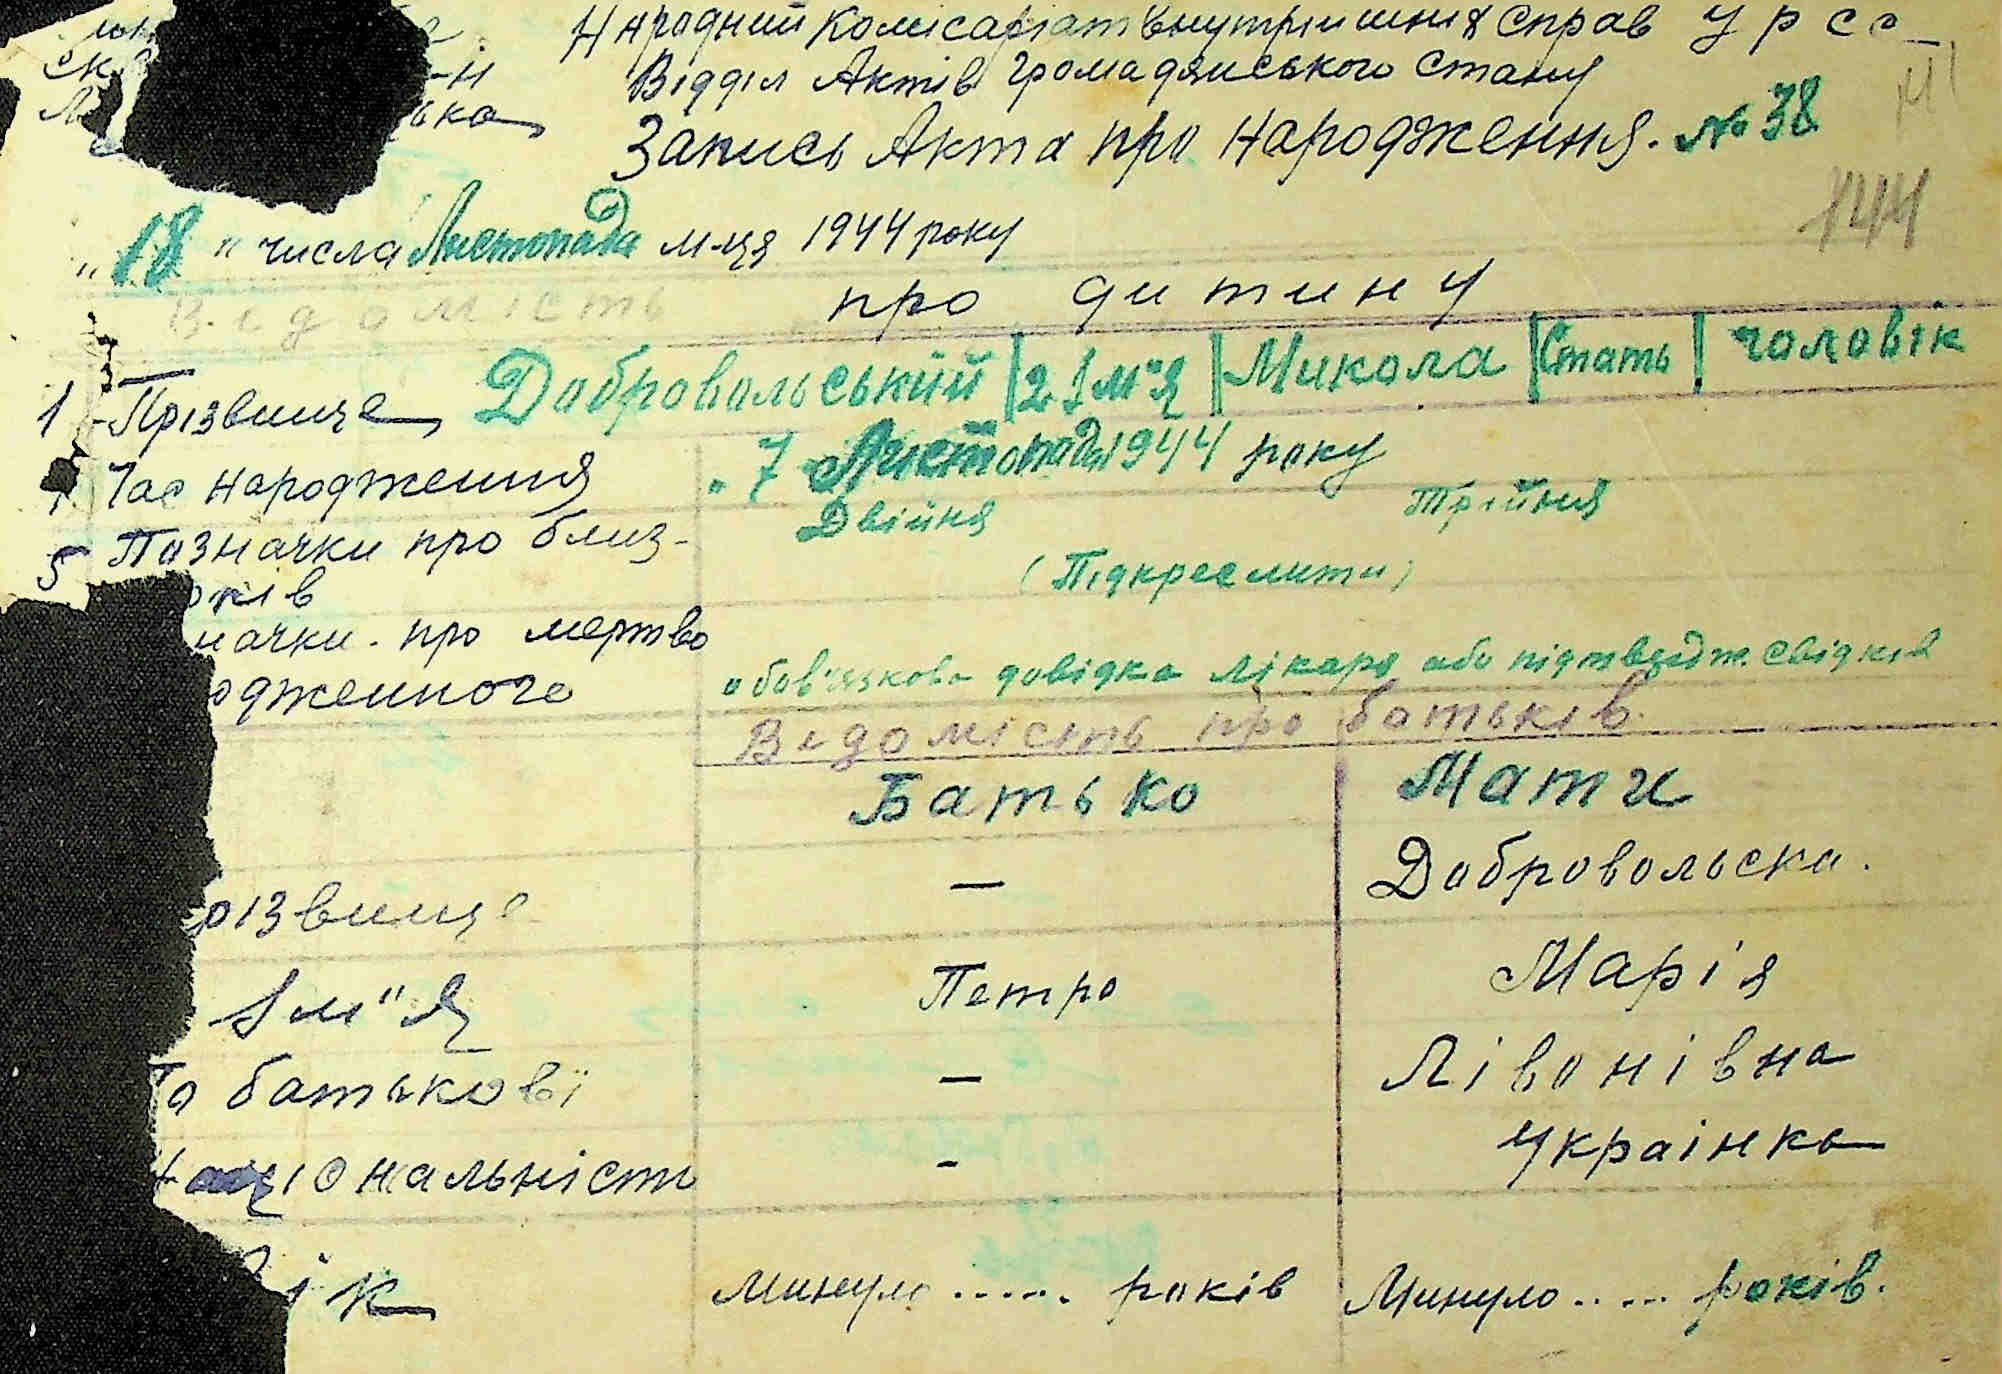 Народний Комісаріат Внутрішних Справ УРСР
Відділ Актів Громадянського Стану
Запись Акта про народження. № 38
144
„18" числа Листопада м-ця 1944 року
Відомість про дитину
1 Прізвище Добровольський | 2 Ім"я | Микола | Стать | чоловік
Час народження „7 Листопада 1944 року
5 Позначки про близ- Двійня Трійня
оків (Підкреслити)
начки про мертво
одженного обов'язково довідка лікаря або підтвердж. свідків
Відомість про батьків.
Батько Мати
різвище — Добровольска.
Ім"я Петро Марія
По батькові — Лівонівна
Національність - Украінка
ік Минуло ..... років Минуло ..... років.